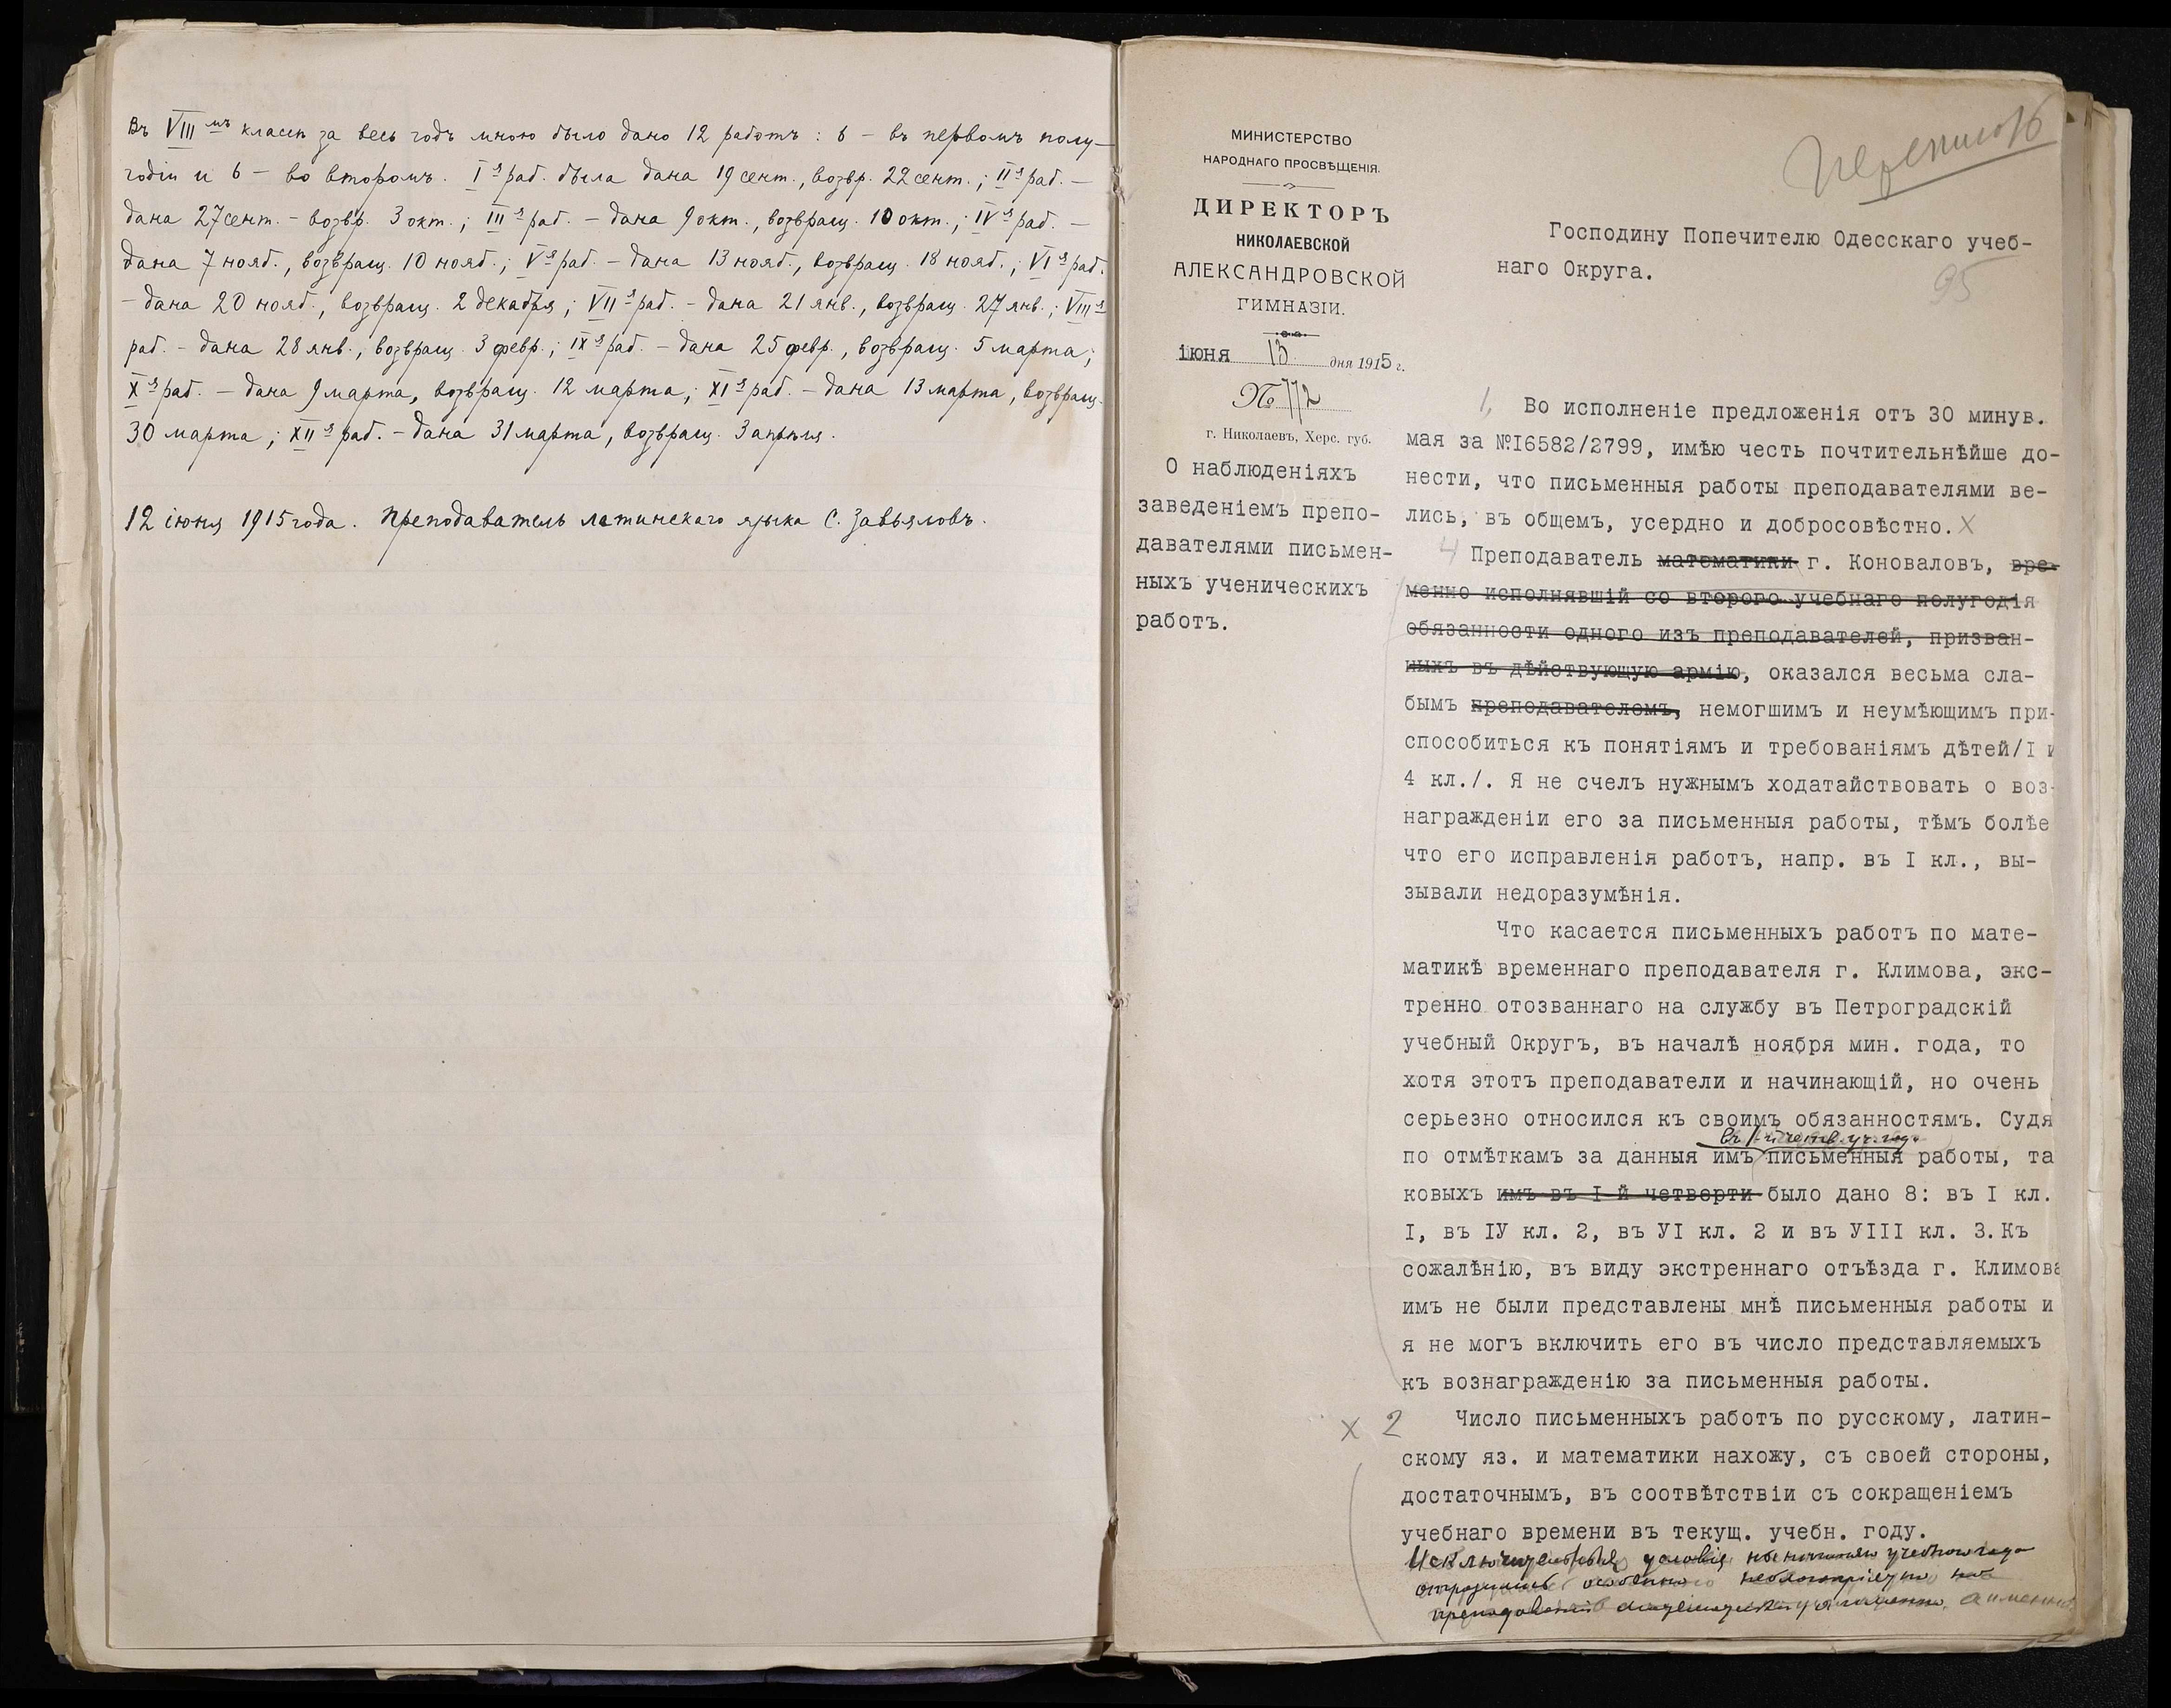 Въ VIII мъ классѣ за весь годъ мною было дано 12 работъ: 6 – въ первомъ полу-
годіи и 6 – во второмъ. I-я раб. была дана 19 сент., возвр. 22 сент.; II-я раб. –
дана 27 сент. – возвр. 3 окт.; III-я раб. – дана 9 окт., возвращ. 10 окт.; IV-я раб. –
дана 7 нояб., возвращ. 10 нояб.; V-я раб. – дана 13 нояб., возвращ. 18 нояб.; VI-я раб.
– дана 20 нояб., возвращ. 2 декабря; VII-я раб. – дана 21 янв., возвращ. 27 янв.; VIII-я
раб. – дана 28 янв., возвращ. 3 февр.; IX-я раб. – дана 25 февр., возвращ. 5 марта;
X-я раб. – дана 9 марта, возвращ. 12 марта; XI-я раб. – дана 13 марта, возвращ.
30 марта; XII-я раб. – дана 31 марта, возвращ. 3 апрѣля.
12 іюня 1915 года. Преподаватель латинскаго языка С. Завьяловъ.
МИНИСТЕРСТВО
НАРОДНАГО ПРОСВѢЩЕНІЯ.
ДИРЕКТОРЪ
НИКОЛАЕВСКОЙ
АЛЕКСАНДРОВСКОЙ
ГИМНАЗІИ.
іюня 13 дня 1915 г.
№ 772
г. Николаевъ, Херс. губ.
О наблюденіяхъ
заведеніемъ препо-
давателями письмен-
ныхъ ученическихъ
работъ.
95
Господину Попечителю Одесскаго учеб-
наго Округа.
1, Во исполненіе предложенія отъ 30 минув.
мая за №I6582/2799, имѣю честь почтительнѣйше до-
нести, что письменныя работы преподавателями ве-
лись, въ общемъ, усердно и добросовѣстно. X
4 Преподаватель математики г. Коноваловъ, вре-
менно исполнявшій со второго учебнаго полугодія
обязанности одного изъ преподавателей, призван-
ныхъ въ дѣйствующую армію, оказался весьма сла-
бымъ преподавателомъ, немогшимъ и неумѣющимъ при-
способиться къ понятіямъ и требованіямъ дѣтей/I и
4 кл./. Я не счелъ нужнымъ ходатайствовать о воз-
награжденіи его за письменныя работы, тѣмъ болѣе
что его исправленія работъ, напр. въ I кл., вы-
зывали недоразумѣнія.
Что касается письменныхъ работъ по мате-
матикѣ временнаго преподавателя г. Климова, экс-
тренно отозваннаго на службу въ Петроградскій
учебный Округъ, въ началѣ ноября мин. года, то
хотя этотъ преподаватели и начинающій, но очень
серьезно относился къ своимъ обязанностямъ. Судя
въ I-й четв. уч. года
по отмѣткамъ за данныя имъ письменныя работы, та
ковыхъ имъ въ I-й четверти было дано 8: въ I кл.
I, въ IУ кл. 2, въ УI кл. 2 и въ УIII кл. 3.Къ
сожалѣнію, въ виду экстреннаго отъѣзда г. Климова
имъ не были представлены мнѣ письменныя работы и
я не могъ включить его въ число представляемыхъ
къ вознагражденію за письменныя работы.
X 2 Число письменныхъ работъ по русскому, латин-
скому яз. и математики нахожу, съ своей стороны,
достаточнымъ, въ соотвѣтствіи съ сокращеніемъ
учебнаго времени въ текущ. учебн. году.
Исключительныя условія нынѣшняго учебнаго года
отразились особенно неблагопріятно на
преподаваніи а именно